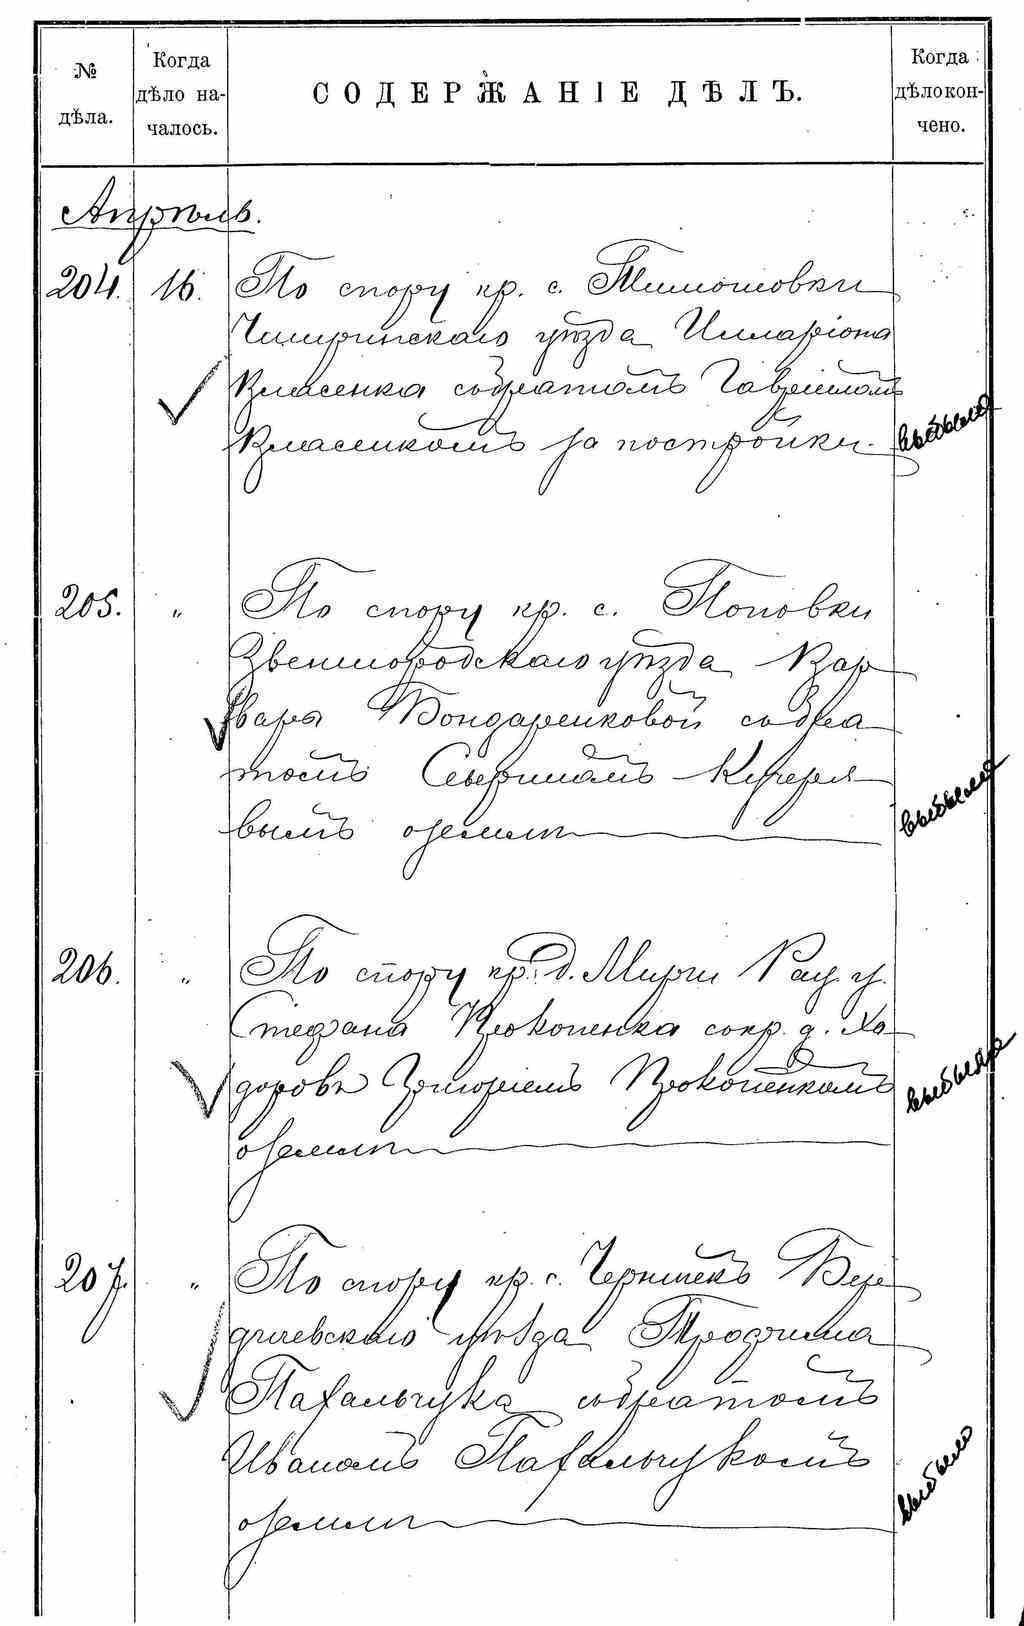 № дѣла.
Когда дѣло на-
чалось.
СОДЕРЖАНІЕ ДѢЛЪ.
Когда дѣло кон-
чено.
Апрѣль.
204. 16. По спору кр. с. Тимошовки
Чигиринскаго уѣзда Иларіона
Власенка съ братомъ Гавріиломъ
Власенкомъ за постройки. выбыло
205. „ По спору кр. с. Поповки
Звенигородскаго уѣзда Вар-
вары Бондаренковой съ бра-
томъ Северіаномъ Кучеря-
вымъ о землѣ выбыло
206. „ По спору кр. д. Ради. у.
Стефана Прокопенка с кр. д. Хо-
дорова Григоріемъ Прокопенкомъ
о землѣ выбыло
207. „ По спору кр. с. Бер-
дичевскаго уѣзда Трофима
Пахальчука съ братомъ
Иваномъ Пахальчукомъ
о землѣ выбыло